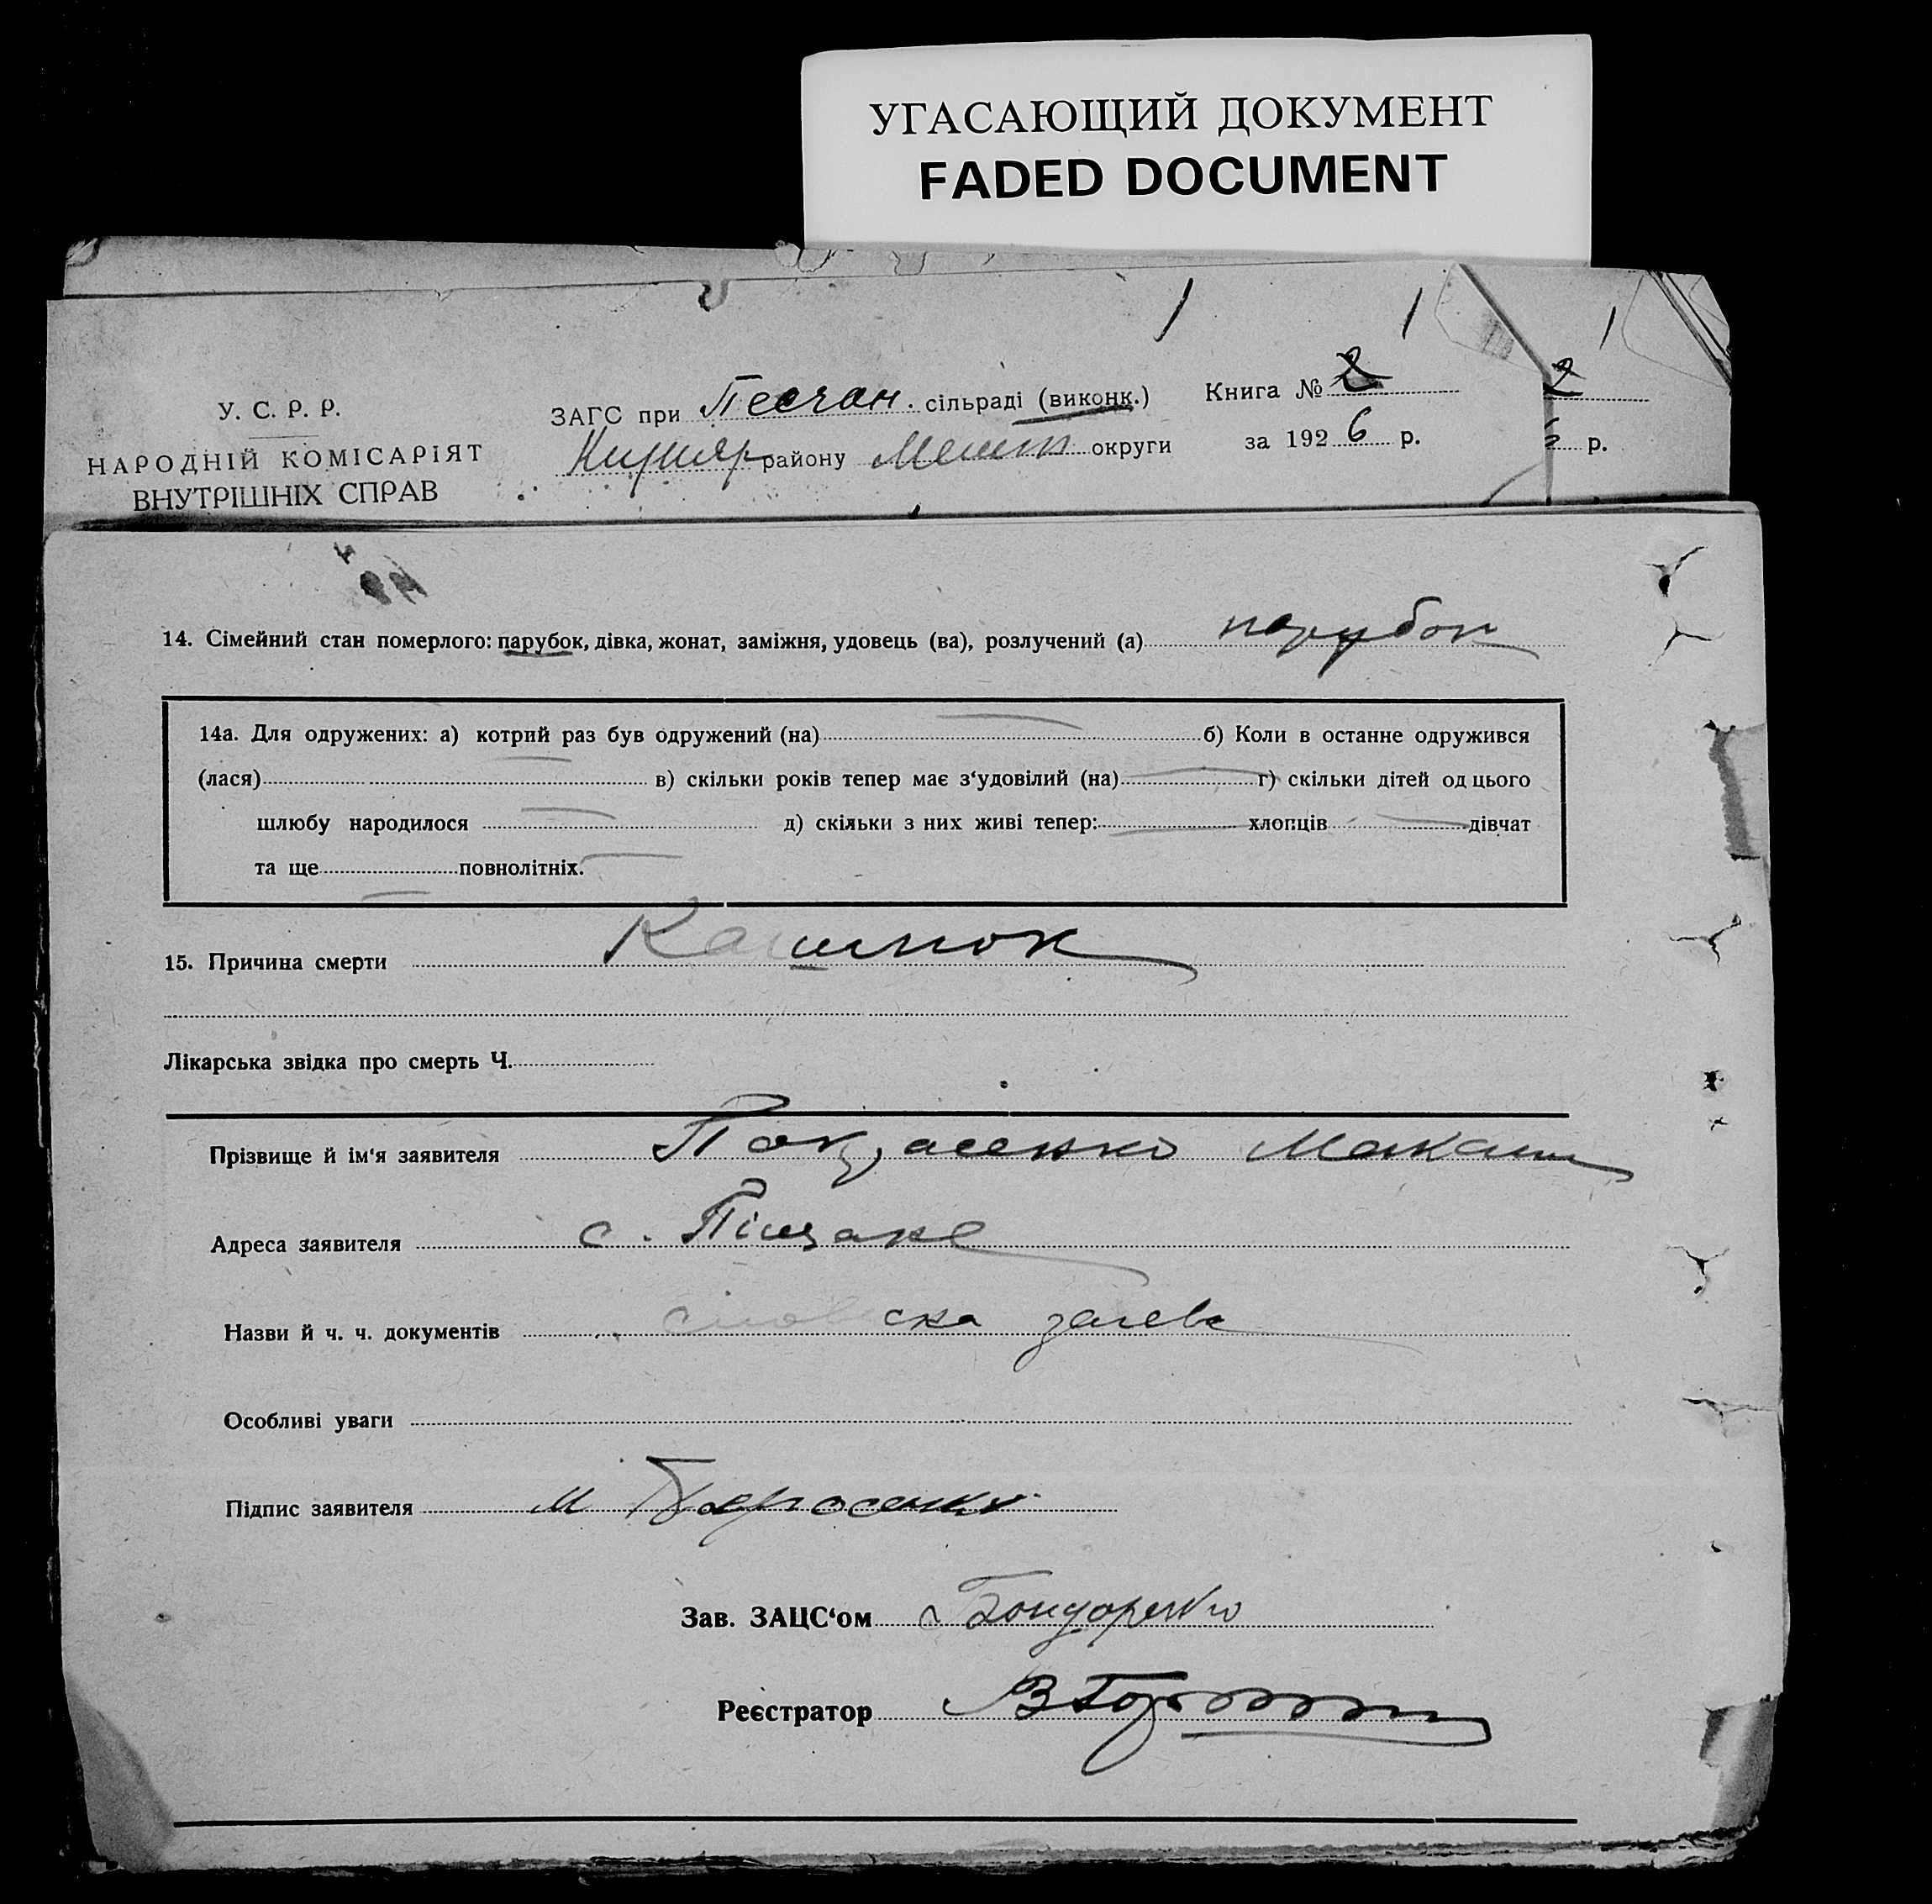 УГАСАЮЩИЙ ДОКУМЕНТ
FADED DOCUMENT
У. С. Р. Р.
НАРОДНІЙ КОМІСАРІЯТ
ВНУТРІШНІХ СПРАВ
ЗАГС при Песчан. сільраді (виконк.)
району округи
Книга № 2
за 1926 р.
2
р.
14. Сімейний стан померлого: парубок, дівка, жонат, заміжня, удовець (ва), розлучений (а) парубок
14а. Для одружених: а) котрий раз був одружений (на) б) Коли в останне одружився
(лася) в) скільки років тепер має з'удовілий (на) г) скільки дітей од цього
шлюбу народилося д) скільки з них живі тепер: хлопців дівчат
та ще повнолітніх.
15. Причина смерти Кашлюк
Лікарська звідка про смерть Ч.
Прізвище й ім'я заявителя
Адреса заявителя с. Піщане
Назви й ч. ч. документів
Особливі уваги
Підпис заявителя М
Зав. ЗАЦС'ом Бондаренко
Реєстратор